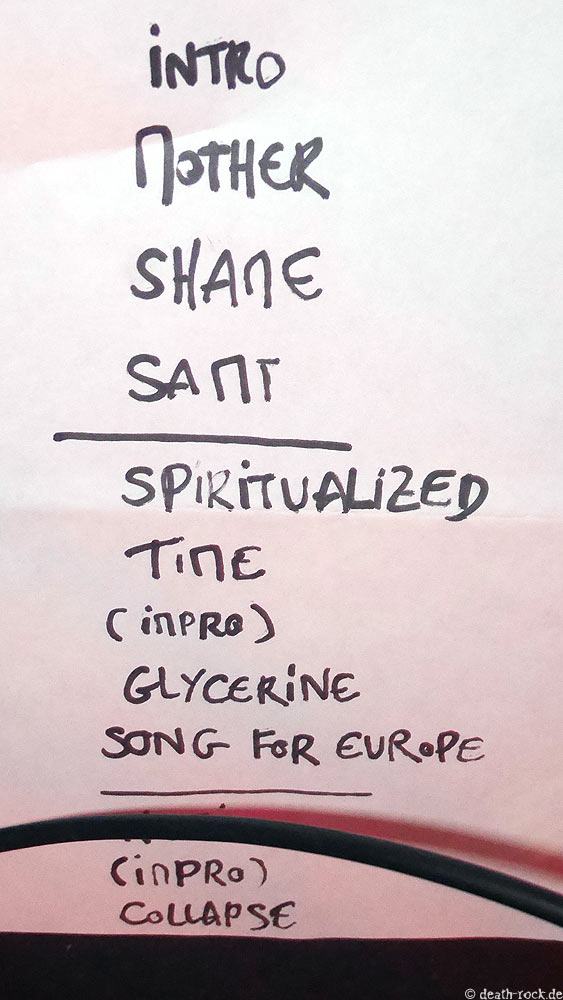 INTRO
MOTHER
SHAME
SAMT
SPIRITUALIZED
TIME
(IMPRO)
GLYCERINE
SONG FOR EUROPE
(IMPRO)
COLLAPSE
© death-rock.de